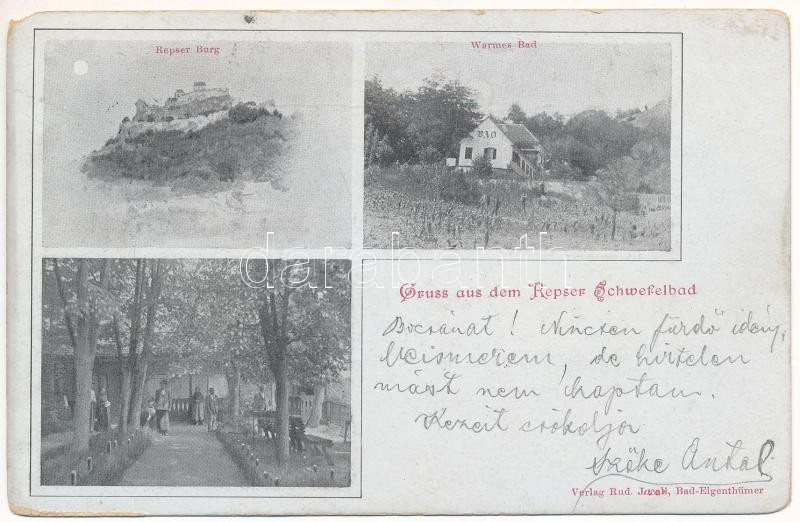 Repser Burg
Warmes Bad
BAD
darabanth.com
Gruss aus dem Repser Schwefelbad
Bocsánat! Nincsen fürdő idény,
beismerem, de hirtelen
mást nem kaptam.
Kezeit csókolja
Szőke Antal
Verlag Rud. Jacobi, Bad-Eigenthümer